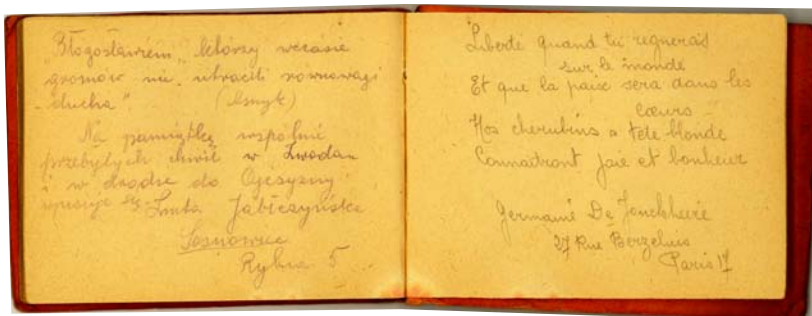 "Błogosławieni, którzy wczasie
gromów nie utracili równowagi
ducha".
(Asnyk)
Na pamiątkę wspólnie
przebytych chwil w Zwodau
i w drodze do Ojczyzny
wpisuje się Jabłczyńska
Sosnowiec
Rybna 5
Liberté quand tu regnerais
sur le monde
Et que la paix sera dans les
cœurs
Nos cherubins a tete blonde
Connaitront joie et bonheur
Germaine De Jonckheere
27 Rue Berzelius
Paris 17